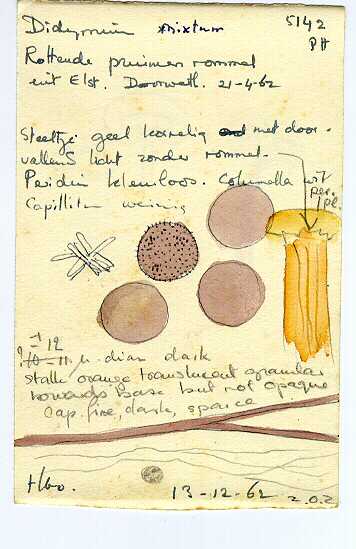 Didymium mixtum 5142
PH
Rottende pruimen rommel
uit Elst. Doorwerth. 21-4-62
Steeltje geel korrelig met door-
vallend licht zonder rommel.
Peridie kleurloos. Columella wit
Capillitium weinig per.
pl.
-12
?10-11 µ diam dark
stalk orange translucent granular
towards base but not opaque
Cap. fine, dark, sparce
Hbo. 13-12-62